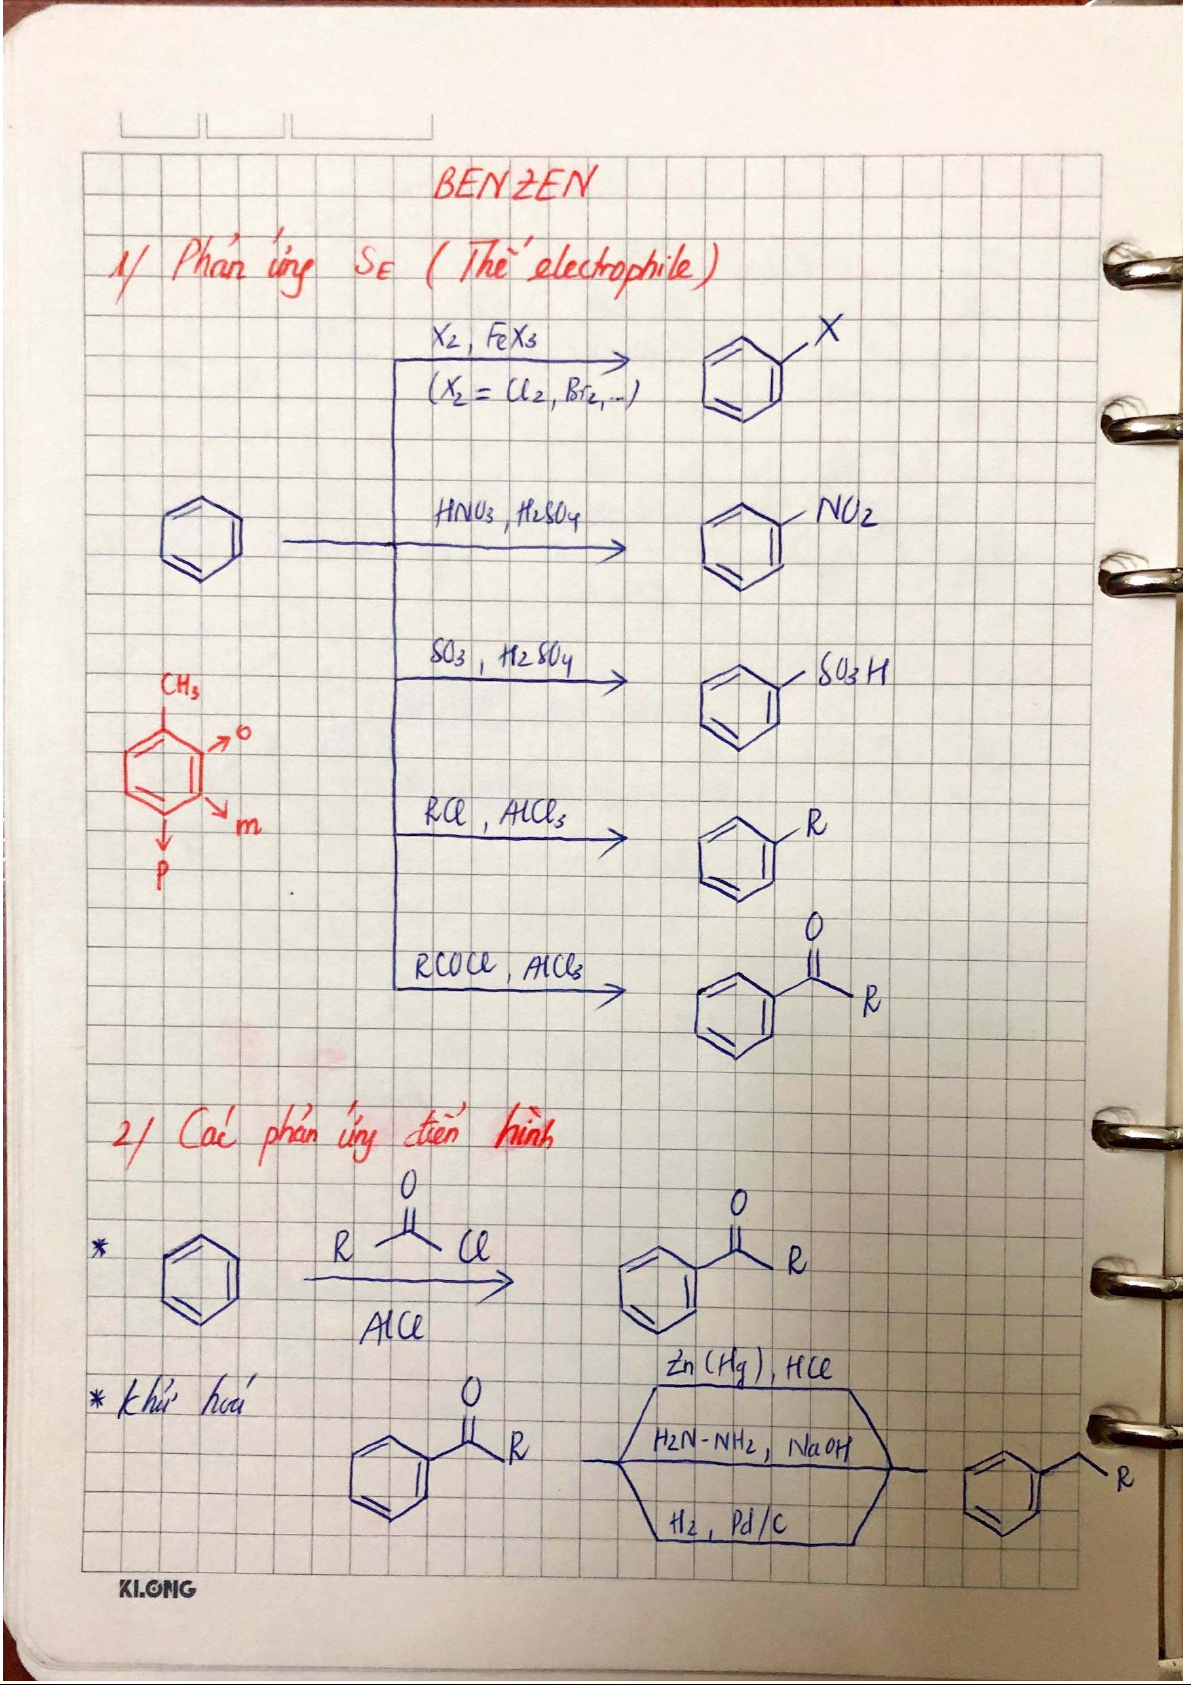 BENZEN
1/ Phản ứng SE (Thế electrophile)
X2, FeX3
X
(X2 = Cl2, Br2,...)
HNO3, H2SO4
NO2
SO3, H2SO4
SO3H
CH3
o
m
P
RCl, AlCl3
R
RCOCl, AlCl3
O
R
2/ Các phản ứng điển hình
*
O
R
Cl
AlCl
O
R
* khử hoá
O
R
Zn(Hg), HCl
H2N-NH2, NaOH
H2, Pd/C
R
KLONG